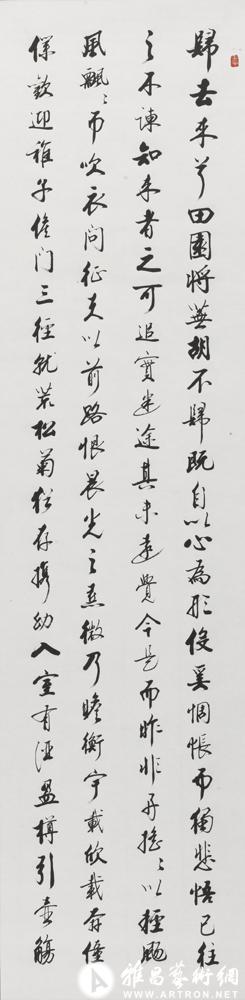 歸去来兮田園将蕪胡不歸既自以心為形役奚惆悵而獨悲悟已往
之不諫知来者之可追實迷途其未遠覺今是而昨非舟摇〻以輕颺
風飄〻而吹衣问征夫以前路恨晨光之熹微乃瞻衡宇載欣載奔僮
僕歡迎稚子候门三徑就荒松菊猶存攜幼入室有酒盈樽引壺觴
雅昌藝術網
WWW.ARTRON.NET